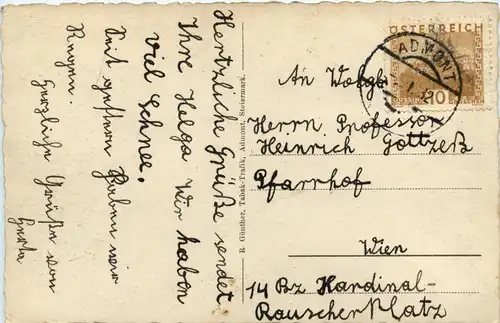 Hertzliche Grüße sendet
Ihre Helga Wir haben
viel Schnee.
Seit gestern haben wir
Regen.
Herzliche Grüße von
Herta
R. Günther, Tabak-Trafik, Admont, Steiermark.
ÖSTERREICH
ADMONT
An
Herrn Professor
Heinrich Gottzeß
Pfarrhof
Wien
14 Bz Kardinal-
Rauscher Platz